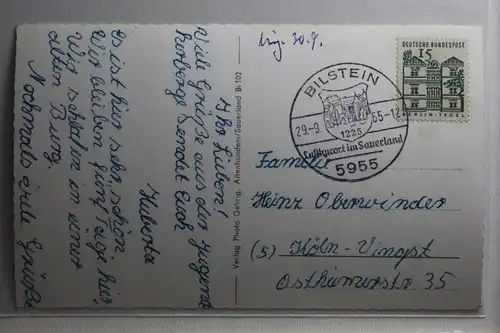 Ihr Lieben!
Viele Grüße aus der Jugend
herberge sendet Euch
Huberta
Es ist hier sehr schön.
Wir bleiben fünf Tage hier
Wir schlafen in einer
alten Burg.
Nochmals viele Grüße
Verlag Photo Gering, Altenhundem/Sauerland Bi 102
30. 9.
BILSTEIN
1225
29-9
65-12
Luftkurort im Sauerland
5955
DEUTSCHE BUNDESPOST
15
BERLIN-TEGEL
Familie
Heinz Oberwinder
(5) Köln-Vingst
Ostheimerstr 35